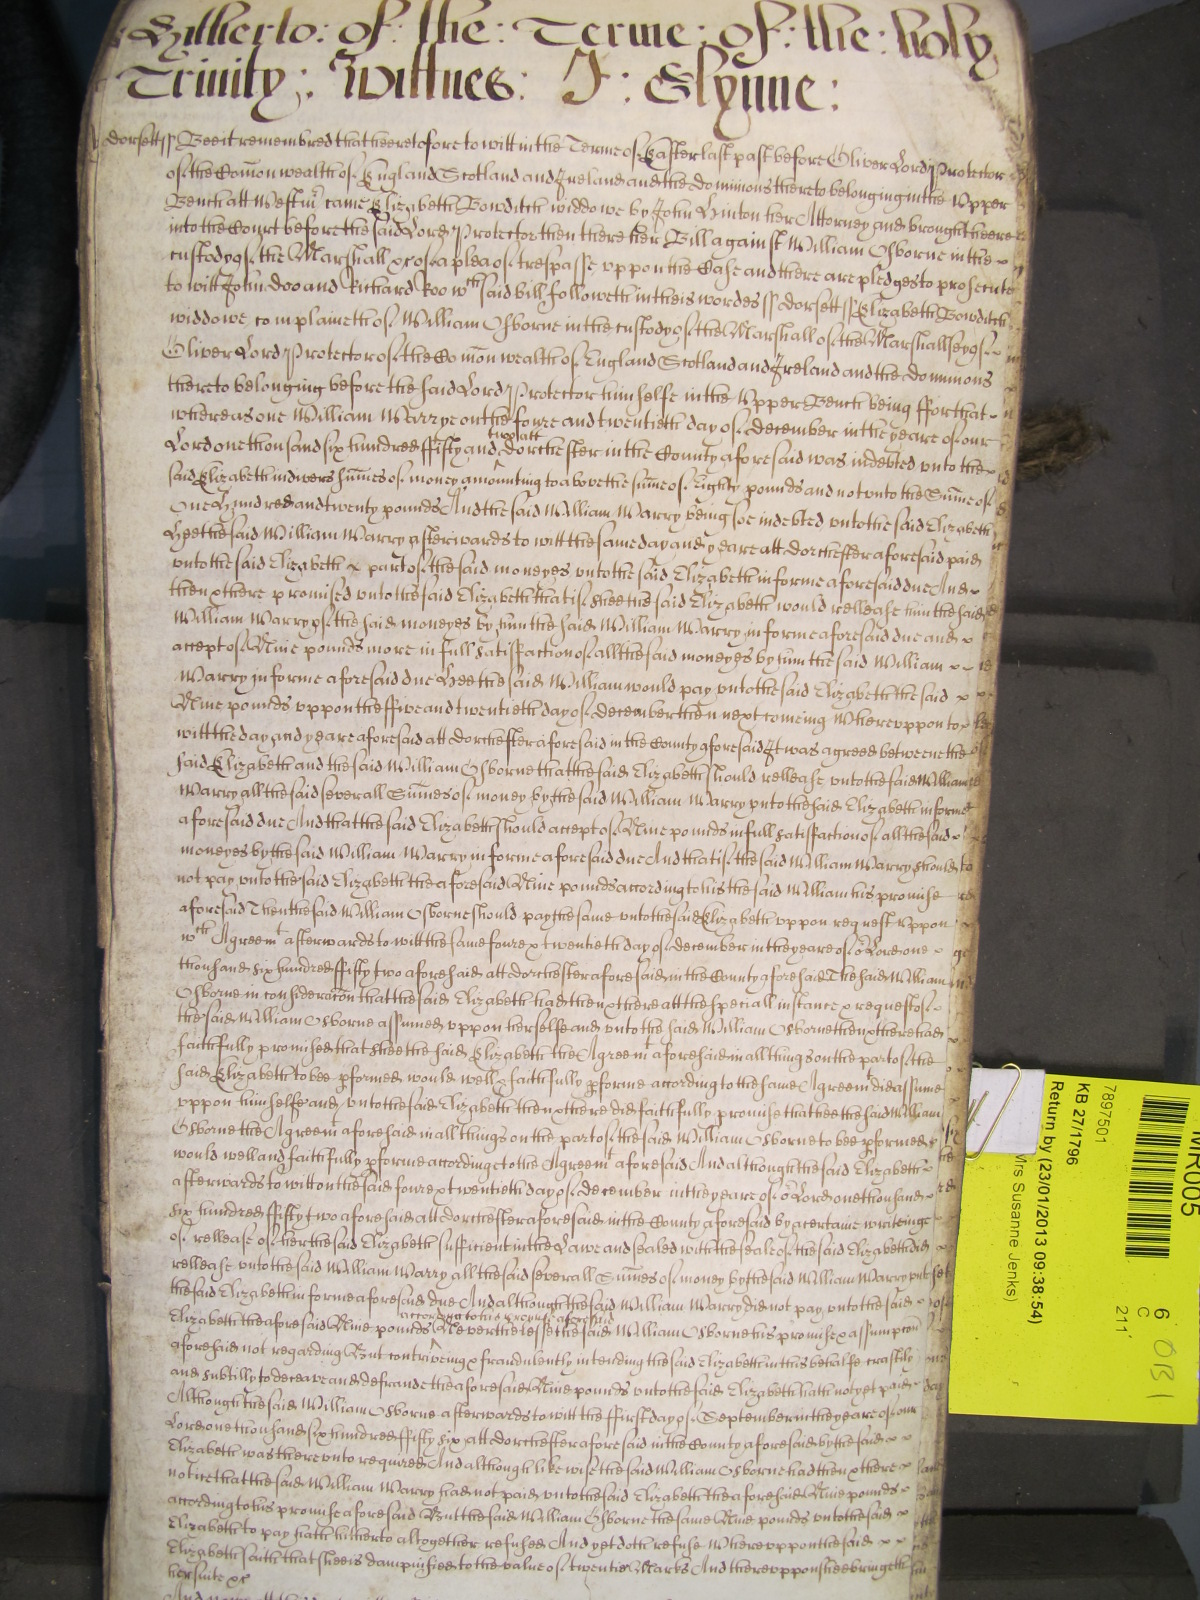 Hitherto: of: the: Terme: of: the: holy
Trinity: Wittnes: J: Glynne:
Dorsett ss Bee it remembred that heeretofore to witt in the Terme of Easter last past before Oliver Lord Protector
of the Comon wealth of England Scotland and Ireland and the dominions thereto belonging in the Upper
Bench att Westmr came Elizabeth Bowditch widdowe by John Hinton her Attorney and brought heere
into the Court before the said Lord Protector then there her Bill against William Osborne in the
custody of the Marshall &c of a plea of trespasse uppon the Case and there are pledges to prosecute
to witt John Doo and Richard Roo wch said bill followeth in theis wordes ss Dorsett ss Elizabeth Bowditch
widdowe complaineth of William Osborne in the custody of the Marshall of the Marshallsey of
Oliver Lord Protector of the Comon wealth of England Scotland and Ireland and the dominions
thereto belonging before the said Lord Protector himselfe in the Upper Bench being ffor that
whereas one William Warry on the foure and twentieth day of December in the yeare of our
Lord one thousand six hundred ffifty and two att Dorchester in the County aforesaid was indebted unto the
said Elizabeth in divers sumes of money amounting to above the sume of Eighty pounds and not unto the Sume of
One Hundred and twenty pounds And the said William Warry being soe indebted unto the said Elizabeth
Hee the said William Warry afterwards to witt the same day and yeare att Dorchester aforesaid paid
unto the said Elizabeth parte of the said moneyes unto the said Elizabeth in forme aforesaid due And
then & there promised unto the said Elizabeth that if shee the said Elizabeth would rellease him the said
William Warry of the said moneyes by him the said William Warry in forme aforesaid due and
accept of Nine pounds more in full satisfaction of all the said moneyes by him the said William
Warry in forme aforesaid due Hee the said William would pay unto the said Elizabeth the said
Nine pounds uppon the ffive and twentieth day of December then next comeing Whereuppon to
witt the day and yeare aforesaid att Dorchester aforesaid in the County aforesaid It was agreed betweene the
said Elizabeth and the said William Osborne that the said Elizabeth should rellease unto the said William
Warry all the said severall Sumes of money by the said William Warry unto the said Elizabeth in forme
aforesaid due And that the said Elizabeth should accept of Nine pounds in full satisfaction of all the said
moneyes by the said William Warry in forme aforesaid due And that if the said William Warry should
not pay unto the said Elizabeth the aforesaid Nine pounds according to his the said William his promise
aforesaid Then the said William Osborne should pay the same unto the said Elizabeth uppon request Uppon
wch Agreemt afterwards to witt the same foure & twentieth day of December in the yeare of or Lord one
thousand six hundred ffifty two aforesaid att Dorchester aforesaid in the County aforesaid The said William
Osborne in consideracon that the said Elizabeth had then & there att the speciall instance & request of
the said William Osborne assumed uppon herselfe and unto the said William Osborne then & there had
faithfully promised that shee the said Elizabeth the Agreemt aforesaid in all things on the part of the
said Elizabeth to bee pformed would well & faithfully pforme according to the same Agreemt did assume
uppon himselfe and unto the said Elizabeth then & there did faithfully promise that hee the said William
Osborne the Agreemt aforesaid in all things on the part of the said William Osborne to bee pformed
would well and faithfully pforme according to the Agreemt aforesaid And although the said Elizabeth
afterwards to witt on the said foure & twentieth day of December in the yeare of or Lord one thousand
six hundred ffifty two aforesaid att Dorchester aforesaid in the County aforesaid by a certaine writeinge
of rellease of her the said Elizabeth sufficient in the Lawe and sealed with the seale of the said Elizabeth did
rellease unto the said William Warry all the said severall Sumes of money by the said William Warry unto
the said Elizabeth in forme aforesaid due And although the said William Warry did not pay unto the said
Elizabeth the aforesaid Nine pounds according to his promise aforesaid Neverthelesse the said William Osborne his promise & assumpcon
aforesaid not regarding But contriveing & fraudulently intending the said Elizabeth in this behalfe craftily
and subtilly to deceave and defraud the aforesaid Nine pounds unto the said Elizabeth hath not yet paid
Although the said William Osborne afterwards to witt the ffirst day of September in the yeare of our
Lord one thousand six hundred ffifty six att Dorchester aforesaid in the County aforesaid by the said
Elizabeth was thereunto required And although likewise the said William Osborne had then & there
notice that the said William Warry had not paid unto the said Elizabeth the aforesaid Nine pounds
according to his promise aforesaid But the said William Osborne the same Nine pounds unto the said
Elizabeth to pay hath hitherto altogether refused And yet doth refuse Whereuppon the said
Elizabeth saith that shee is dampnified to the value of twentie Marks And thereuppon shee bringeth
her suite &c
7897501
KB 27/1796
Return by (23/01/2013 09:38:54)
Mrs Susanne Jenks)
MR005
6
C
211